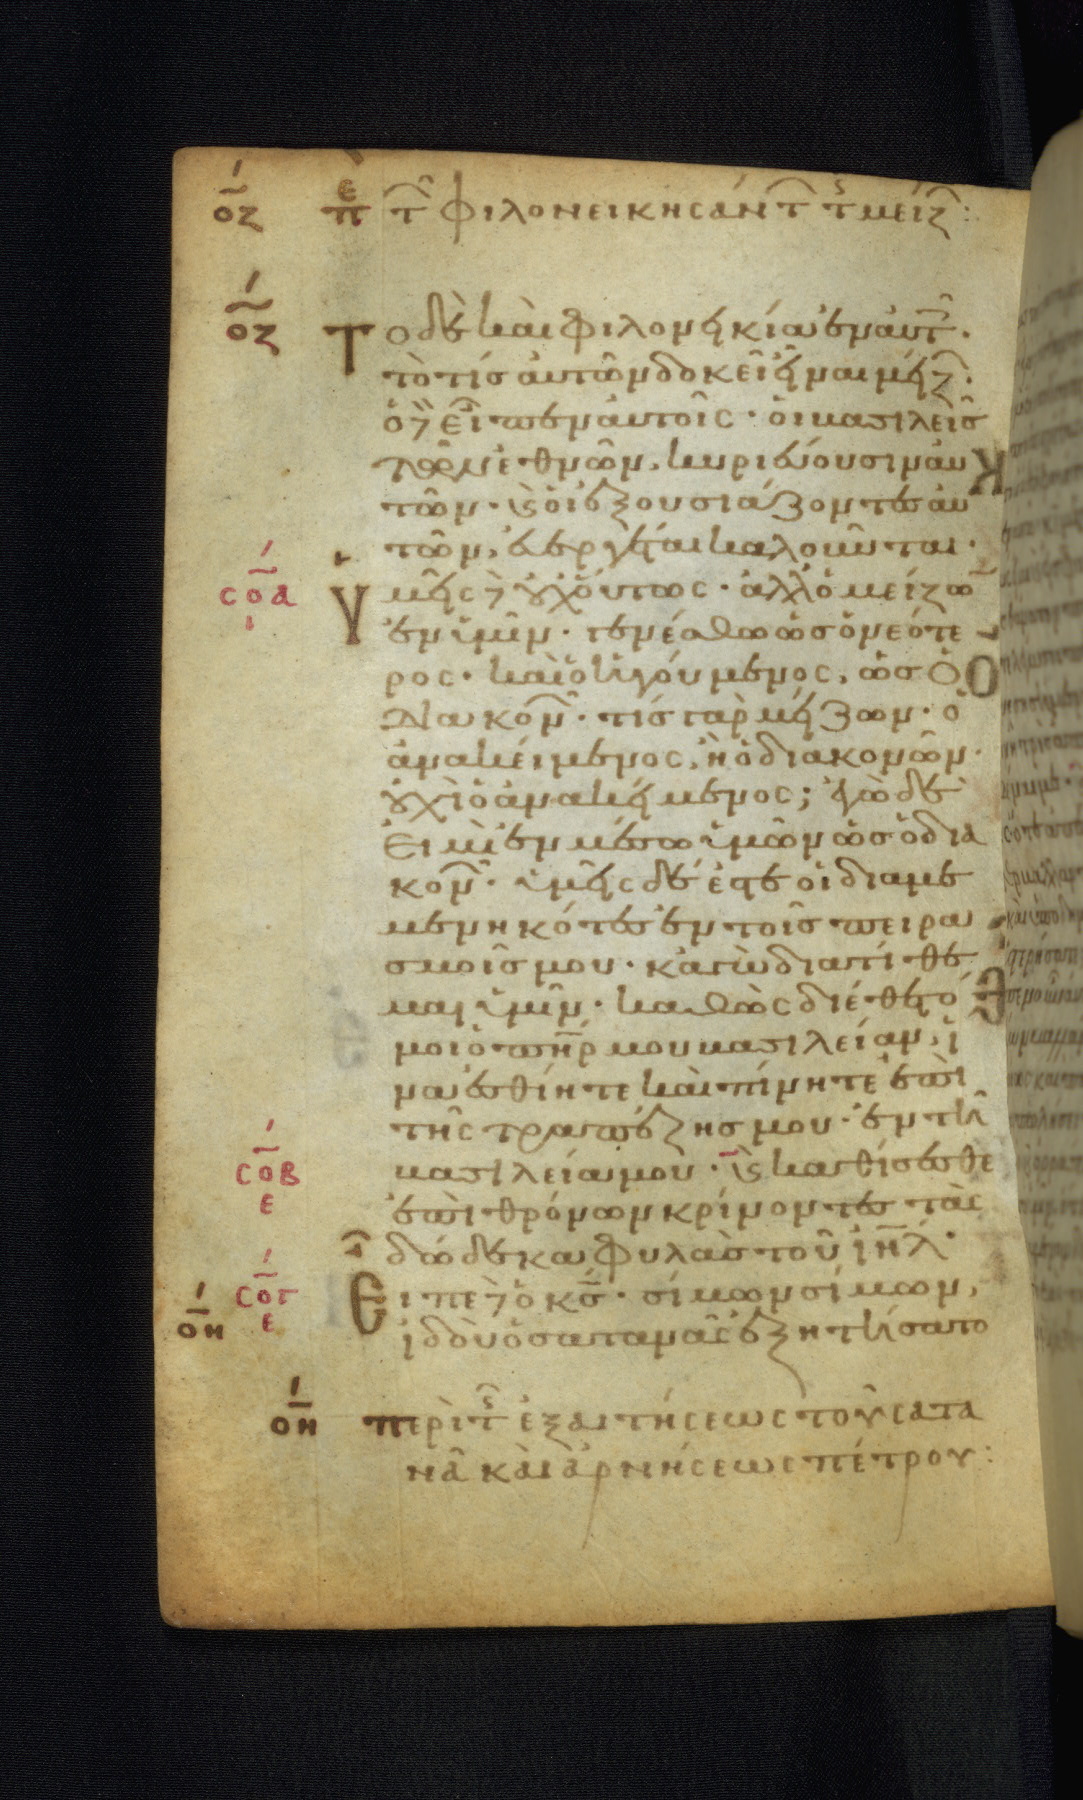 οζ πε τ̑ φιλονεικησάντ τ̑ς μείζ:
οζ
το δὲ καὶ φιλονεικία ἐν αὐτ̑.
τὸ τίς αὐτῶν δοκεῖ εἶναι μείζ.
ὁ δὲ εἶπεν αὐτοῖς· οἱ βασιλεῖς
τῶν ἐθνῶν, κυριεύουσιν αὐ
τῶν· καὶ οἱ ἐξουσιάζοντες αὐ
τῶν, εὐεργέται καλοῦνται·
σοα
ι
ὑμεῖς δὲ οὐχ οὕτως· ἀλλ ὁ μείζω
ἐν ὑμῖν· γενέσθω ὡς ὁ νεώτε
ρος· καὶ ὁ ἡγούμενος, ὡς ὁ
διακον̑· τίς γὰρ μείζων· ὁ
ἀνακείμενος, ἢ ὁ διακονῶν·
οὐχὶ ὁ ἀνακείμενος; ἐγὼ δέ
εἰμι ἐν μέσω ὑμῶν ὡς ὁ δια
κον̑· ὑμεῖς δέ ἐστε οἱ διαμε
μενηκότες ἐν τοῖς πειρα
σμοῖς μου· κἀγὼ διατίθε
μαι ὑμῖν· καθὼς διέθετό
μοι ὁ πηρ μου βασιλείαν, ἵ
να ἐσθίητε καὶ πίνητε ἐπὶ
τῆς τραπέζης μου· ἐν τῆ
σοβ
ε
βασιλεία μου· καὶ καθίσεσθε
ἐπὶ θρόνων κρίνοντες τὰς
δώδεκα φυλὰς τοῦ ιηλ·
σογ
ε
οη
Εἶπε δὲ ὁ κς· σίμων σίμων,
ἰδοὺ ὁ σατανᾶς ἐξητήσατο
οη περὶ τ̑ς ἐξαιτήσεως τοῦ σατα
νᾶ καὶ ἀρνήσεως πέτρου: